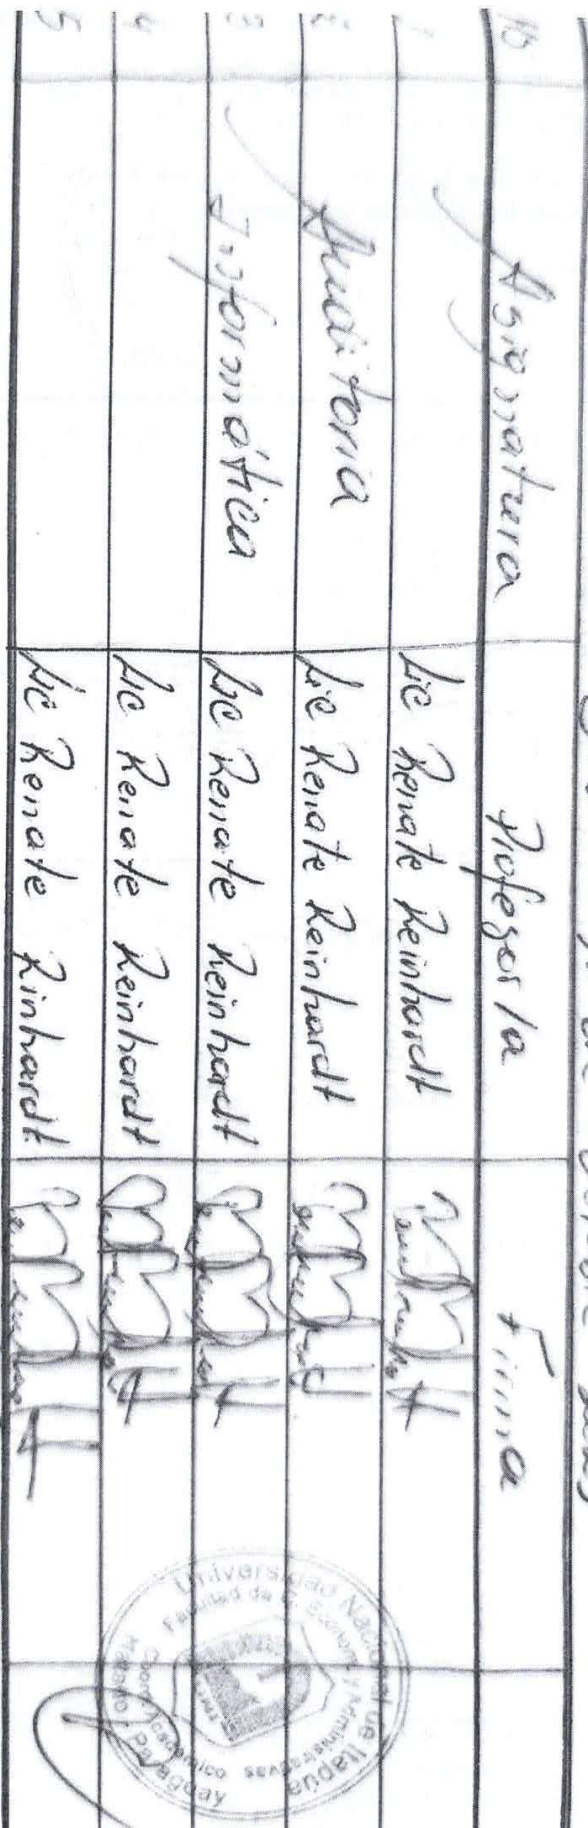 No Asignatura Profesor/a Firma
1 Lic Renate Reinhardt
2 Auditoria Lic Renate Reinhardt
3 Informática Lic Renate Reinhardt
4 Lic Renate Reinhardt
5 Lic Renate Rinhardt
Universidad Nacional de Itapúa
Facultad de C. Econom. y Administrativas
Académico
Paraguay